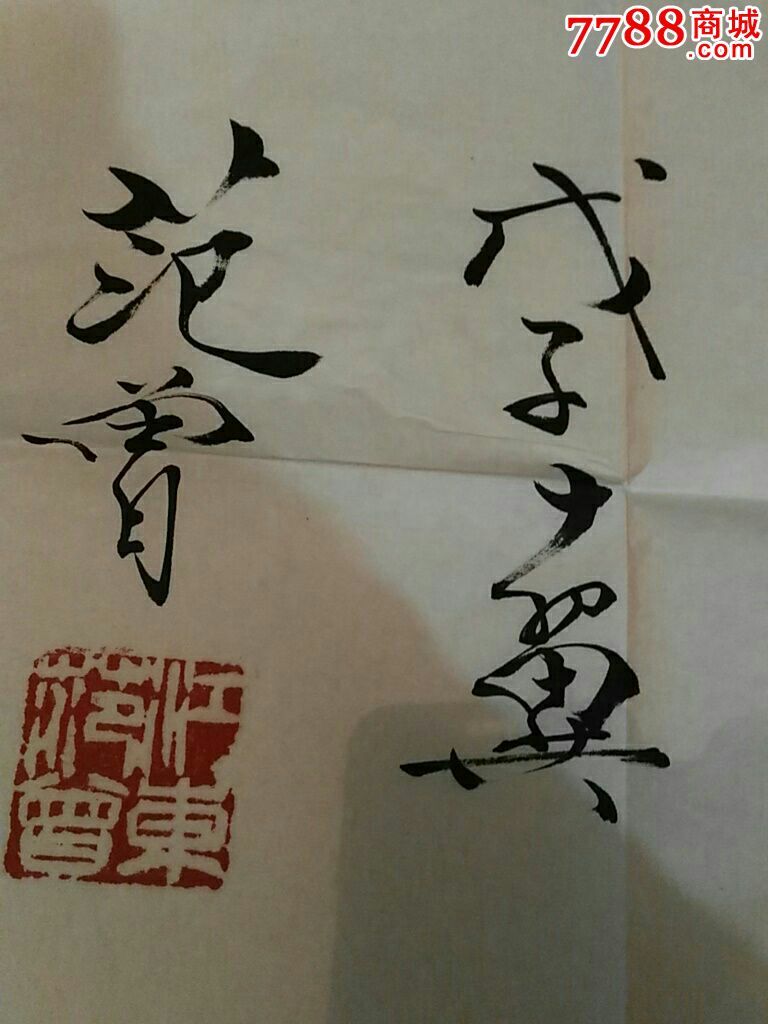 7788商城
.com
戊子十翼
范曾
江東
范曾